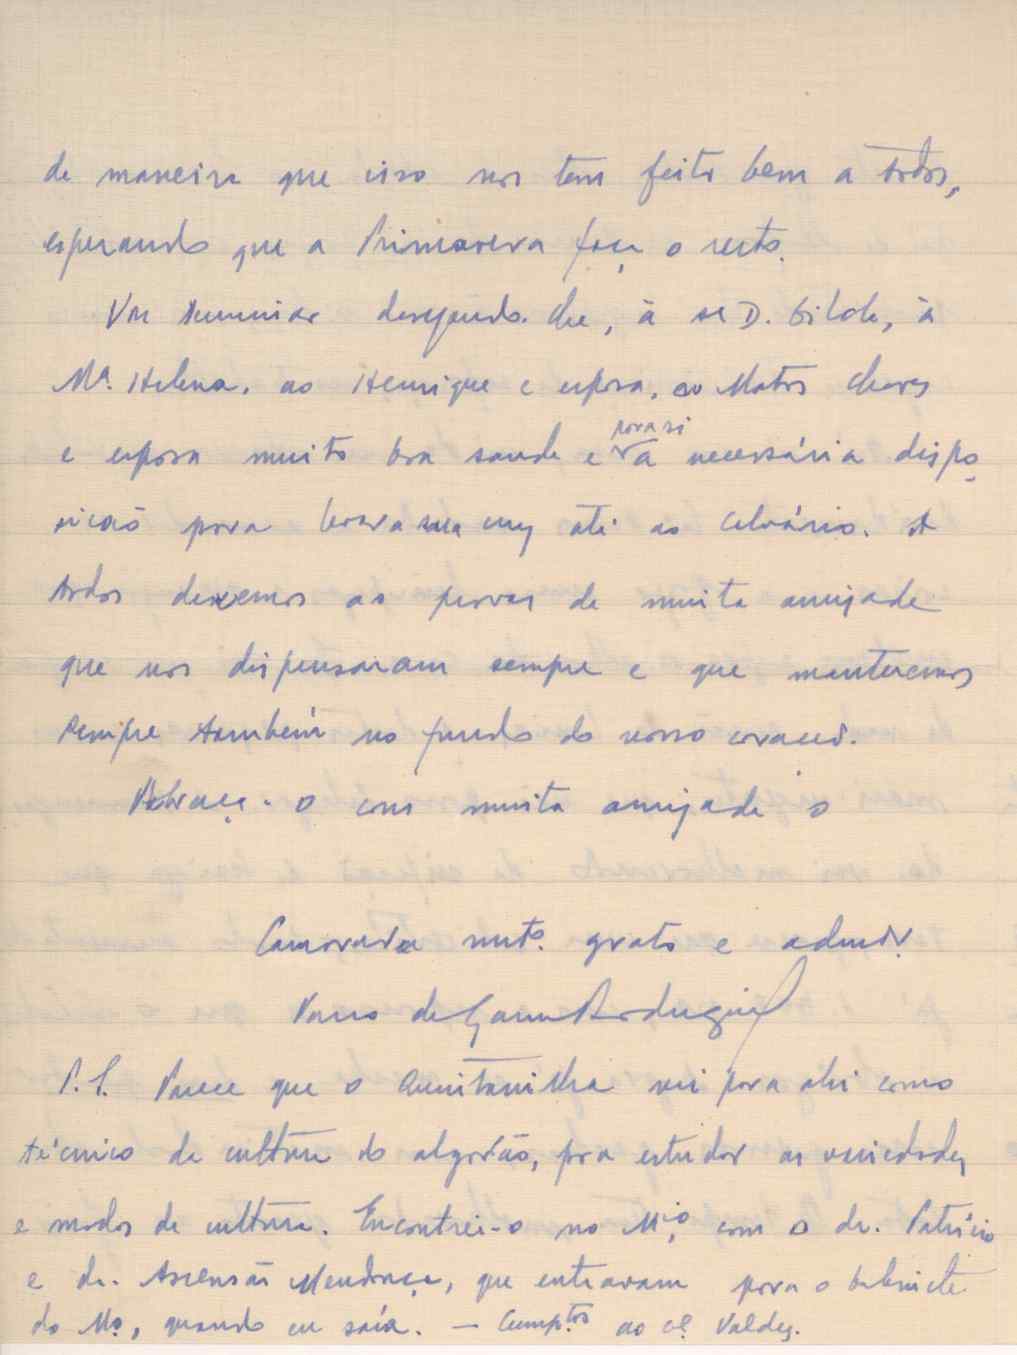 de maneira que isso nos tem feito bem a todos,
esperando que a Primavera faça o resto.
Vou terminar desejando-lhe, à sra D. Gilda, à
Mª. Helena, ao Henrique e esposa, ao Matos Chaves
e esposa muito boa saude e para si a necessária dispo
sição para levar a sua cruz até ao Calvário. A
todos devemos as provas de muita amizade
que nos dispensaram sempre e que manteremos
sempre também no fundo do nosso coração.
Abraça-o com muita amizade o
Camarada muto. grato e admdr.
Vasco de Gama Rodrigues
P.S. Parece que o Quintanilha vai para ahi como
técnico de cultura do algodão, para estudar as variedades
e modos de cultura. Encontrei-o no Mio, com o dr. Patrício
e dr. Ascensão Mendonça, que entravam para o Gabinete
do Mo, quando eu saía. — Cumptos ao cel Valdez.